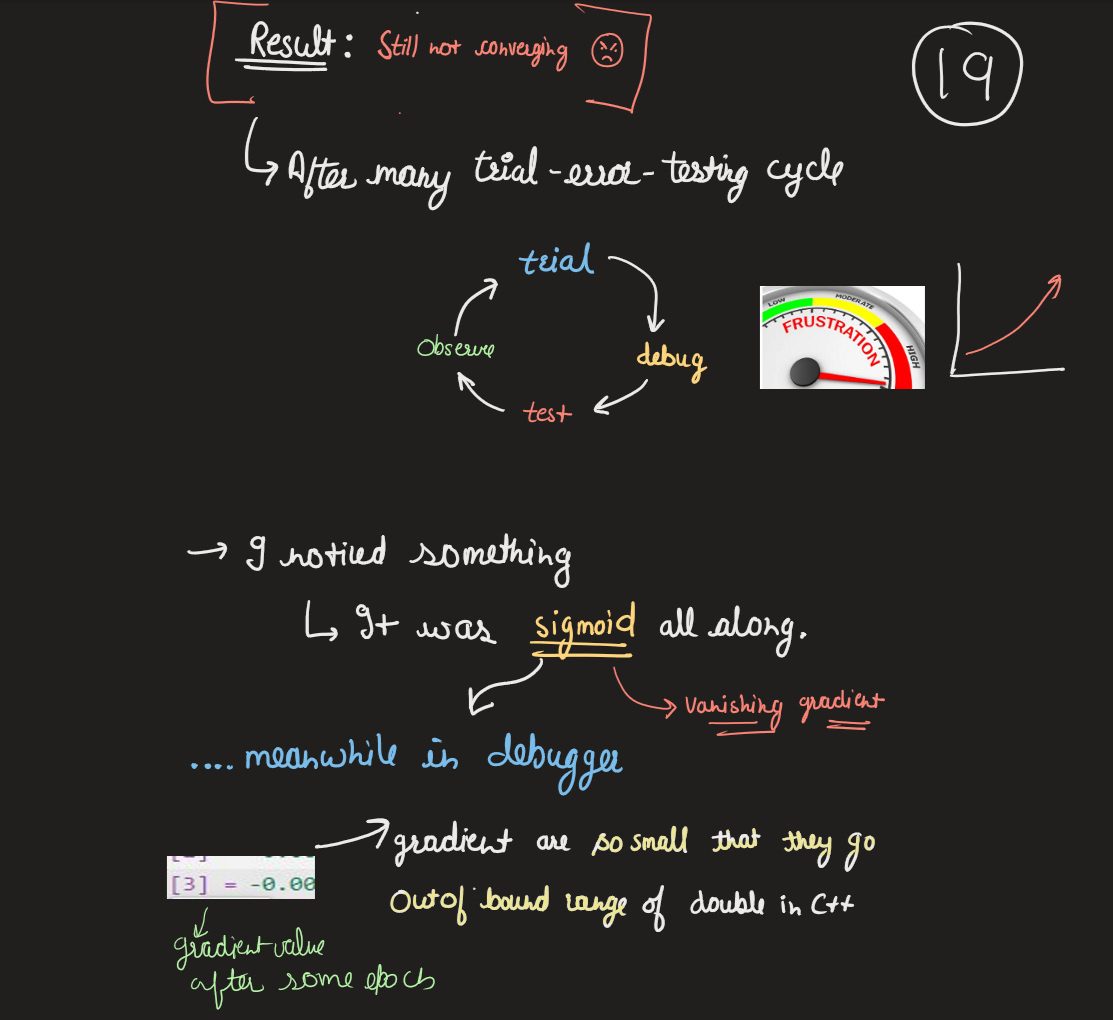 Result: Still not converging
19
After many trial-error-testing cycle
trial
Observe
debug
test
LOW
MODERATE
HIGH
FRUSTRATION
→ I noticed something
It was sigmoid all along.
Vanishing gradient
.... meanwhile in debugger
gradient are so small that they go
Out of bound range of double in C++
[3] = -0.00
gradient value
after some epochs